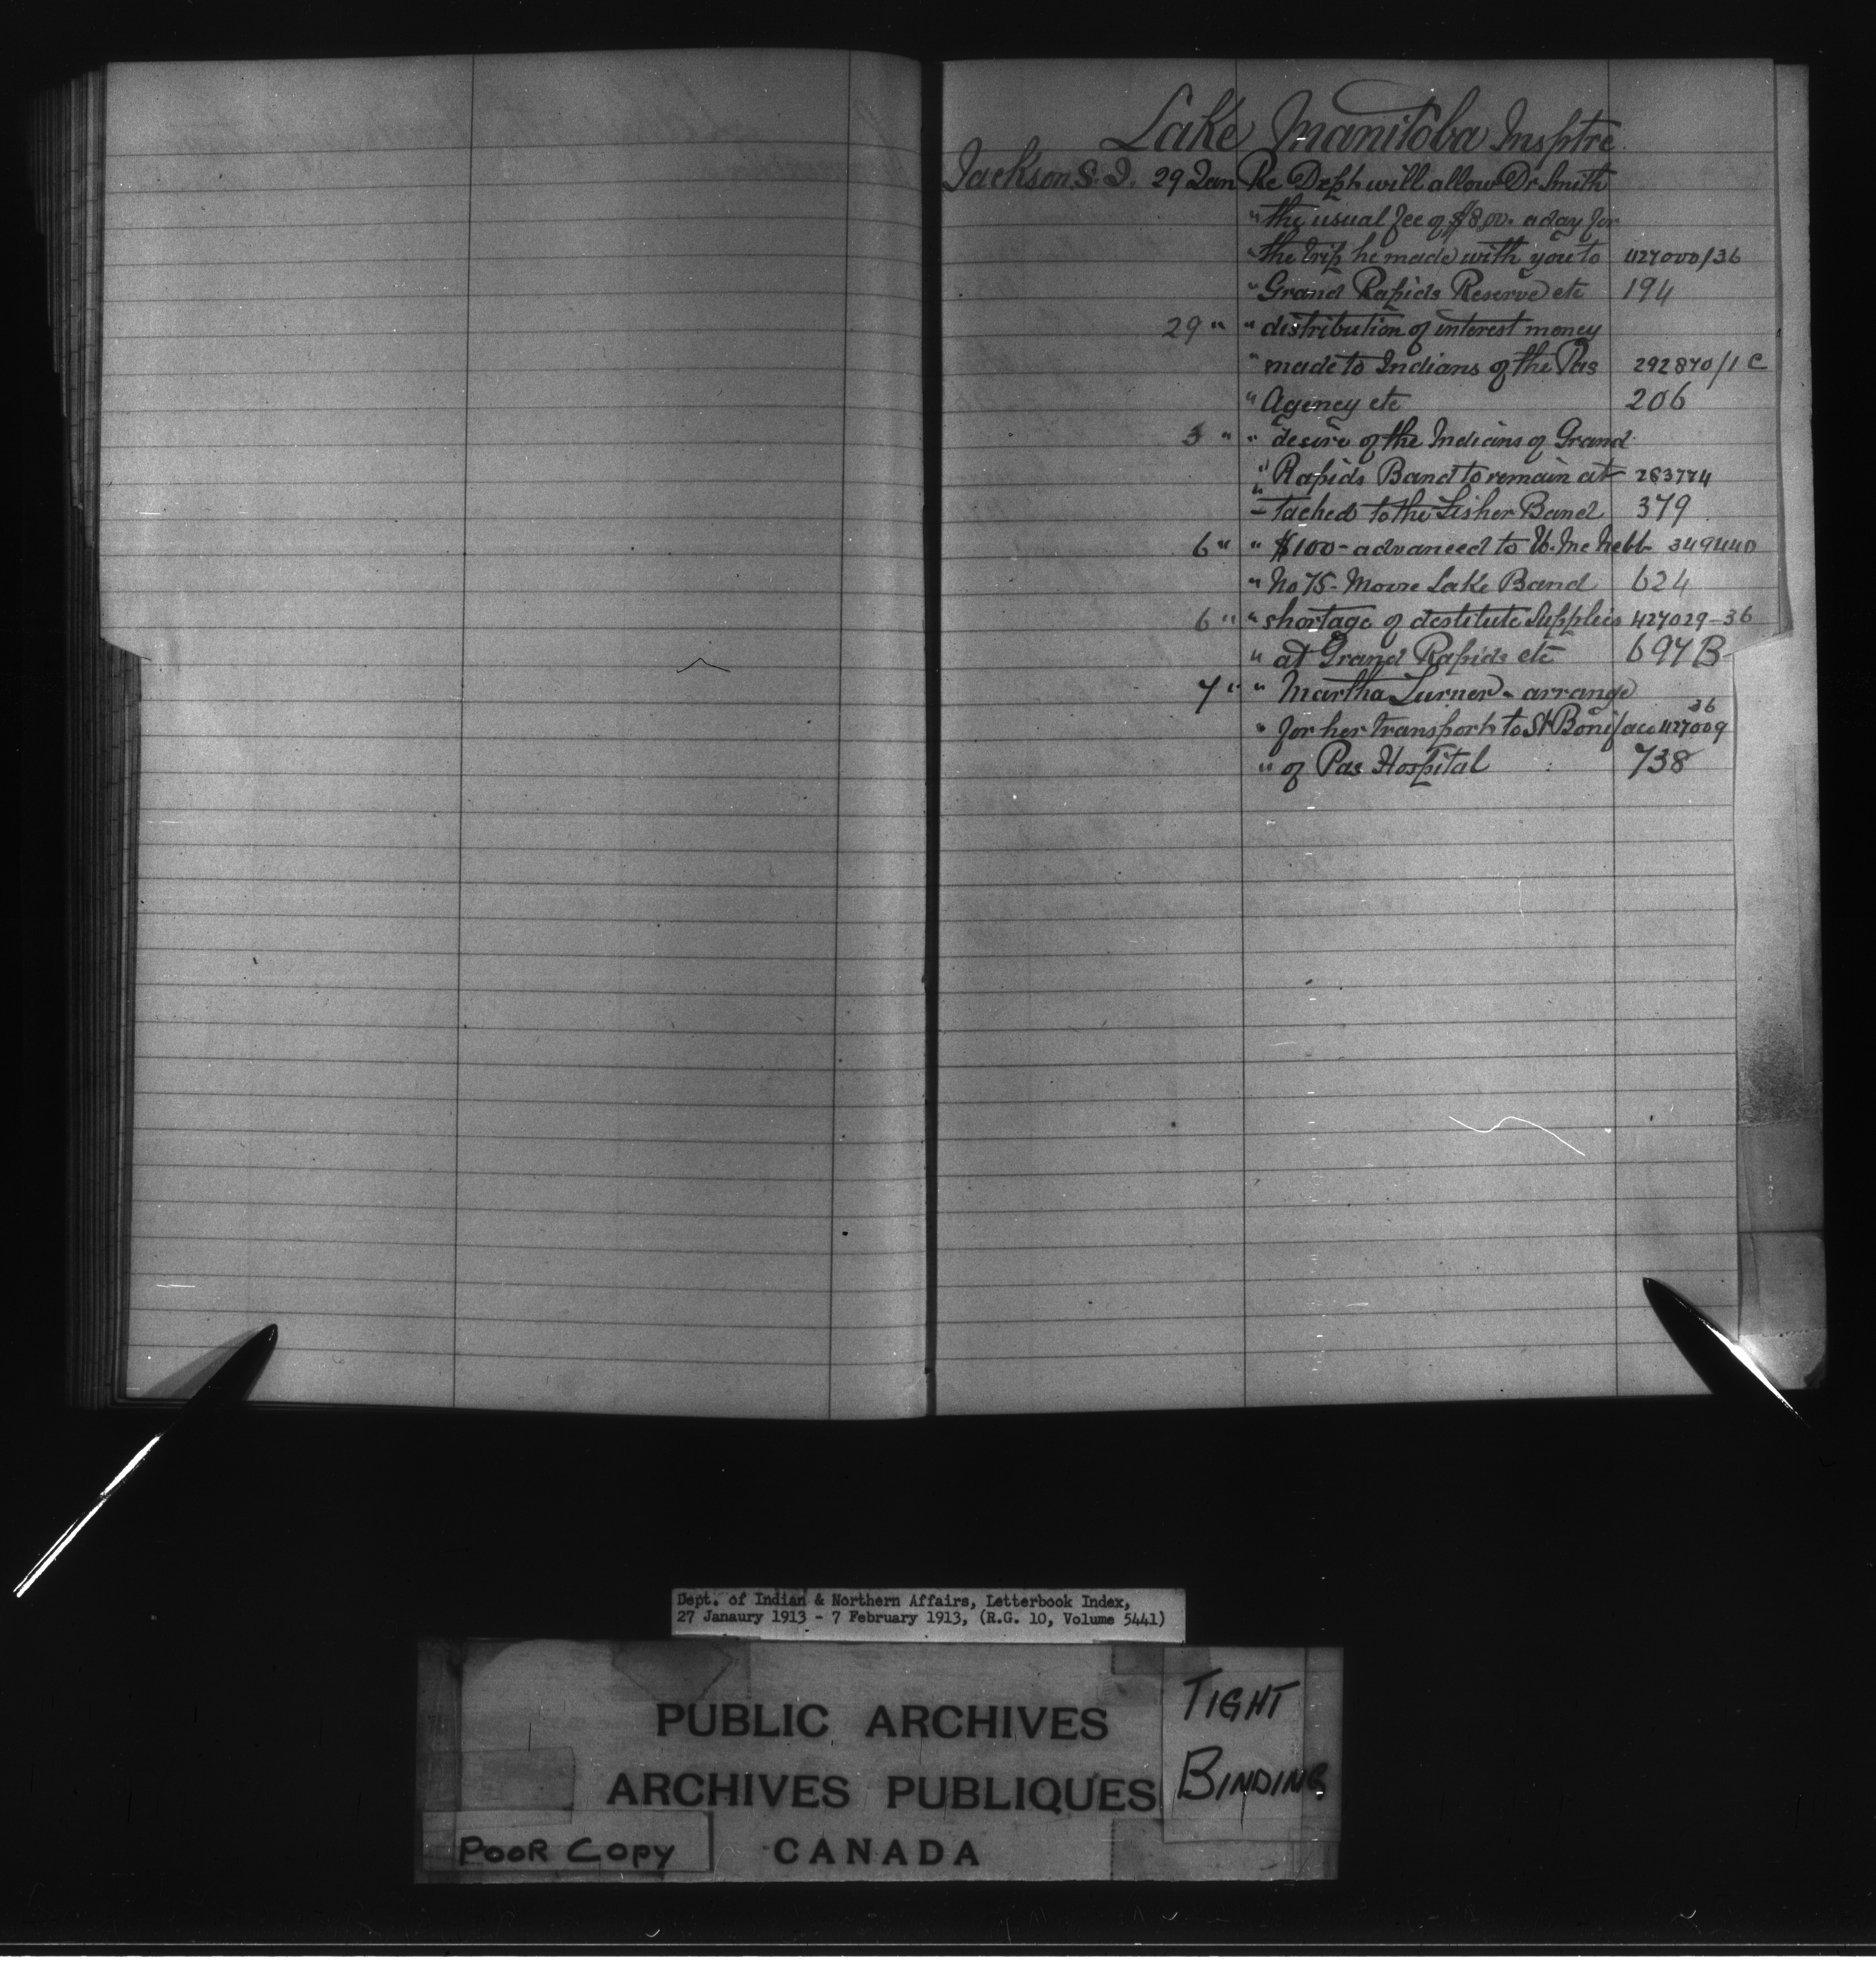 Lake Manitoba Insptre
Jackson S. J. 29 Jan Re Dept will allow Dr Smith
" the usual fee of $8.00. a day for
" the trip he made with you to 427000/36
" Grand Rapids Reserve etc 194
29 " " distribution of interest money
" made to Indians of the Pas 292870/1 C
" Agency etc 206
3 " " desire of the Indians of Grand
" Rapids Band to remain at 263774
" - tached to the Fisher Band 379
6 " " $100 - advanced to 349440
" No 75 - Moose Lake Band 624
6 " " shortage of destitute supplies 427029-36
" at Grand Rapids etc 697 B
7 " " Martha Turner - arrange
" for her transport to St Boniface 427009 36
" of Pas Hospital 738
Dept. of Indian & Northern Affairs, Letterbook Index,
27 Janaury 1913 - 7 February 1913, (R.G. 10, Volume 5441)
PUBLIC ARCHIVES
ARCHIVES PUBLIQUES
CANADA
TIGHT
BINDING
POOR COPY